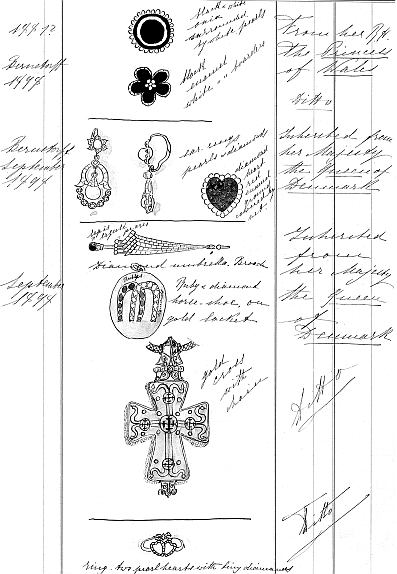 black & white
onix
surrounded
by white pearls
From her R.H.
The Princess
of Wales
Bernstorff
1898
black
enamel
white " " borders
Ditto
Bernstorff
September
1898
ear rings
pearls & diamonds
diamond
heart
red
enamel
Inherited from
her Majesty
the Queen of
Denmark
Diamond umbrella. Brooch
Inherited
from
her Majesty
the Queen
of
Denmark
September
1898
Rubys
Ruby & diamond
horse shoe on
gold locket
gold
cross
with
chain
Ditto
Ditto
ring. two pearl hearts with tiny diamonds